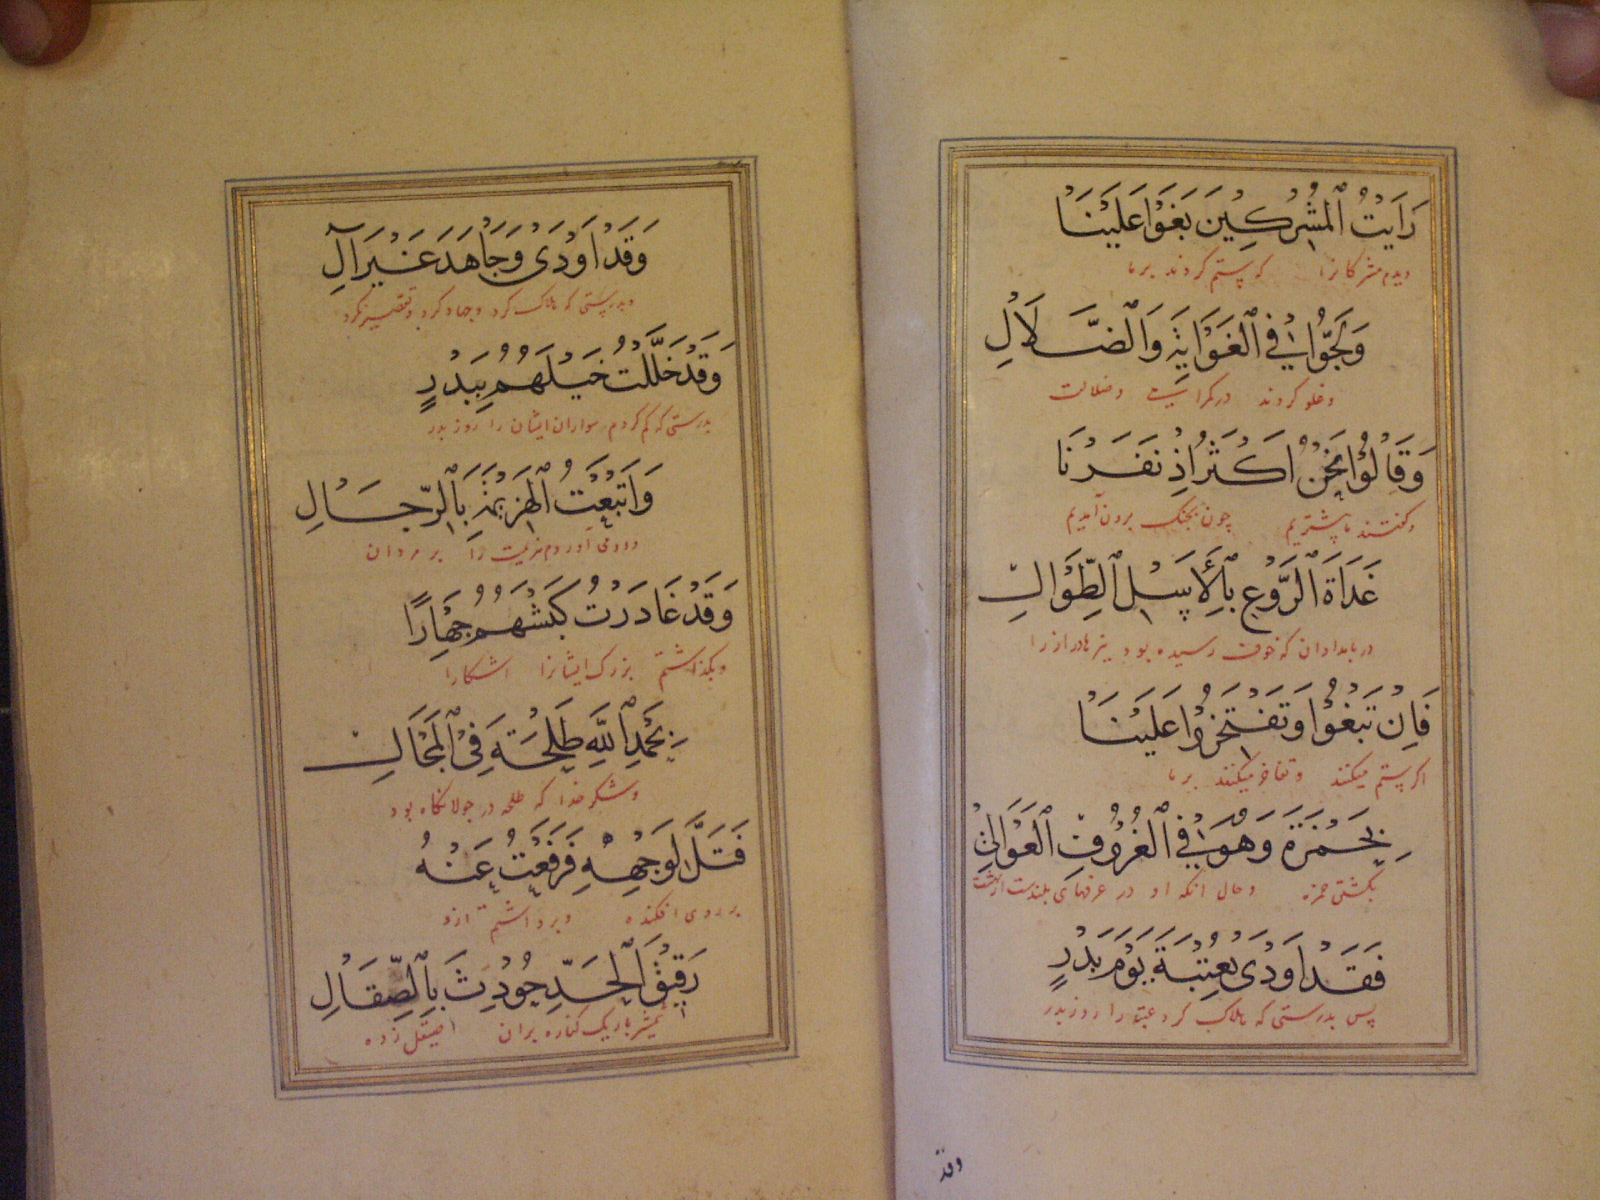 رَاَيْتُ الْمُشْرِكِيْنَ بَغَوْا عَلَيْنَا
ديدم مشركانرا كه ستم كردند بر ما
وَلَجُّوْا فِي الْغَوَايَةِ وَالضَّلَالِ
وغلو كردند در كمراهى وضلالت
وَقَالُوْا نَحْنُ اَكْثَرُ اِذْ نَفَرْنَا
وكفتند ما بيشتريم چون بجنك برون آمديم
غَدَاةَ الرَّوْعِ بِالْأَسَلِ الطِّوَالِ
در بامدادان كه خوف رسيده بود نيزهاى دراز را
فَاِنْ تَبْغُوْا وَتَفْتَخِرُوْا عَلَيْنَا
اكر ستم ميكنند وتفاخر ميكنند بر ما
بِحَمْزَةَ وَهُوَ فِي الْغُرَفِ الْعَوَالِيْ
بكشتن حمزه وحال انكه او در غرفهاى بلندست از بهشت
فَقَدْ اَوْدَى بِعُتْبَةَ يَوْمَ بَدْرٍ
پس بدرستى كه هلاك كرد عتبه را روز بدر
وقد
وَقَدْ اَوْدَى وَجَاهَدَ غَيْرَ آلِ
وبدرستى كه هلاك كرد وجهاد كرد وتقصير نكرد
وَقَدْ فَلَّلْتُ خَيْلَهُمْ بِبَدْرٍ
بدرستى كه كم كردم سواران ايشان را روز بدر
وَاَتْبَعْتُ الْهَزِيْمَةَ بِالرِّجَالِ
در پى آوردم هزيمت را بر مردان
وَقَدْ غَادَرْتُ كَبْشَهُمْ جِهَارًا
وبكذاشتم بزرك ايشانرا اشكارا
بِحَمْدِ اللّٰهِ طَلْحَةَ فِي الْمَجَالِ
وشكر خدا كه طلحه در جولانكاه بود
فَتَلَّ لِوَجْهِهِ فَرَفَعْتُ عَنْهُ
بر روى افكنده وبرداشتم ازو
رَقِيْقَ الْحَدِّ حُوْدِثَ بِالصِّقَالِ
شمشير باريك كناره بران صيقل زده